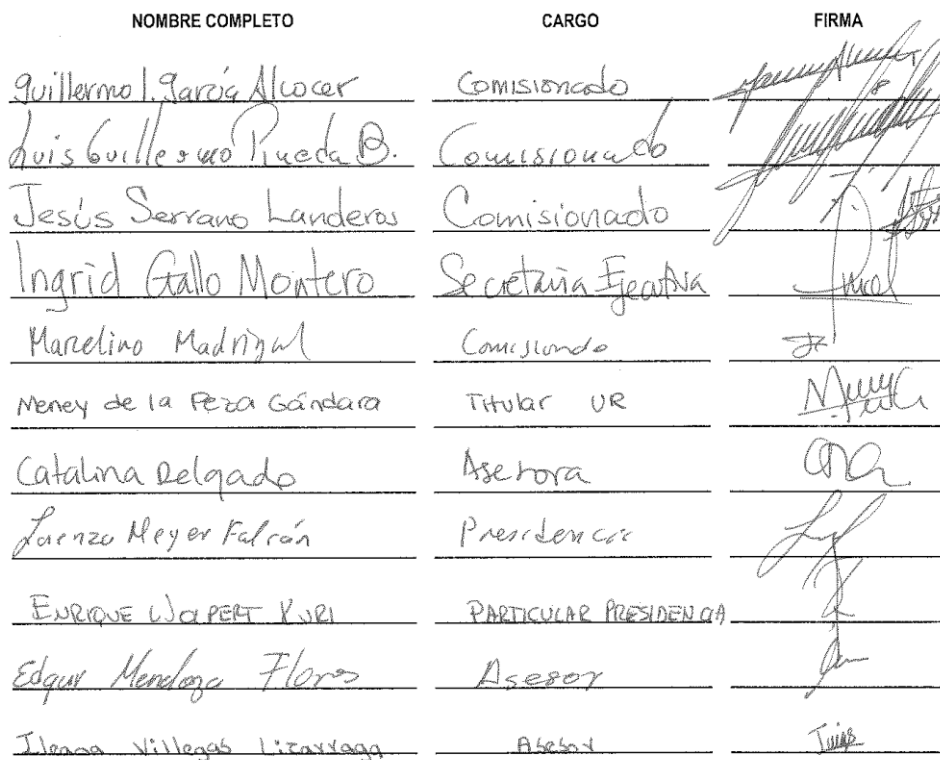 NOMBRE COMPLETO CARGO FIRMA
Guillermo I. García Alcocer Comisionado
Luis Guillermo Pineda B. Comisionado
Jesús Serrano Landeros Comisionado
Ingrid Gallo Montero Secretaria Ejecutiva
Marcelino Madrigal Comisionado
Meney de la Peza Gándara Titular UR
Catalina Delgado Asesora
Lorenzo Meyer Falcón Presidencia
ENRIQUE WOLPERT KURI PARTICULAR PRESIDENCIA
Edgar Mendoza Flores Asesor
Ileana Villegas Lizarraga Asesor